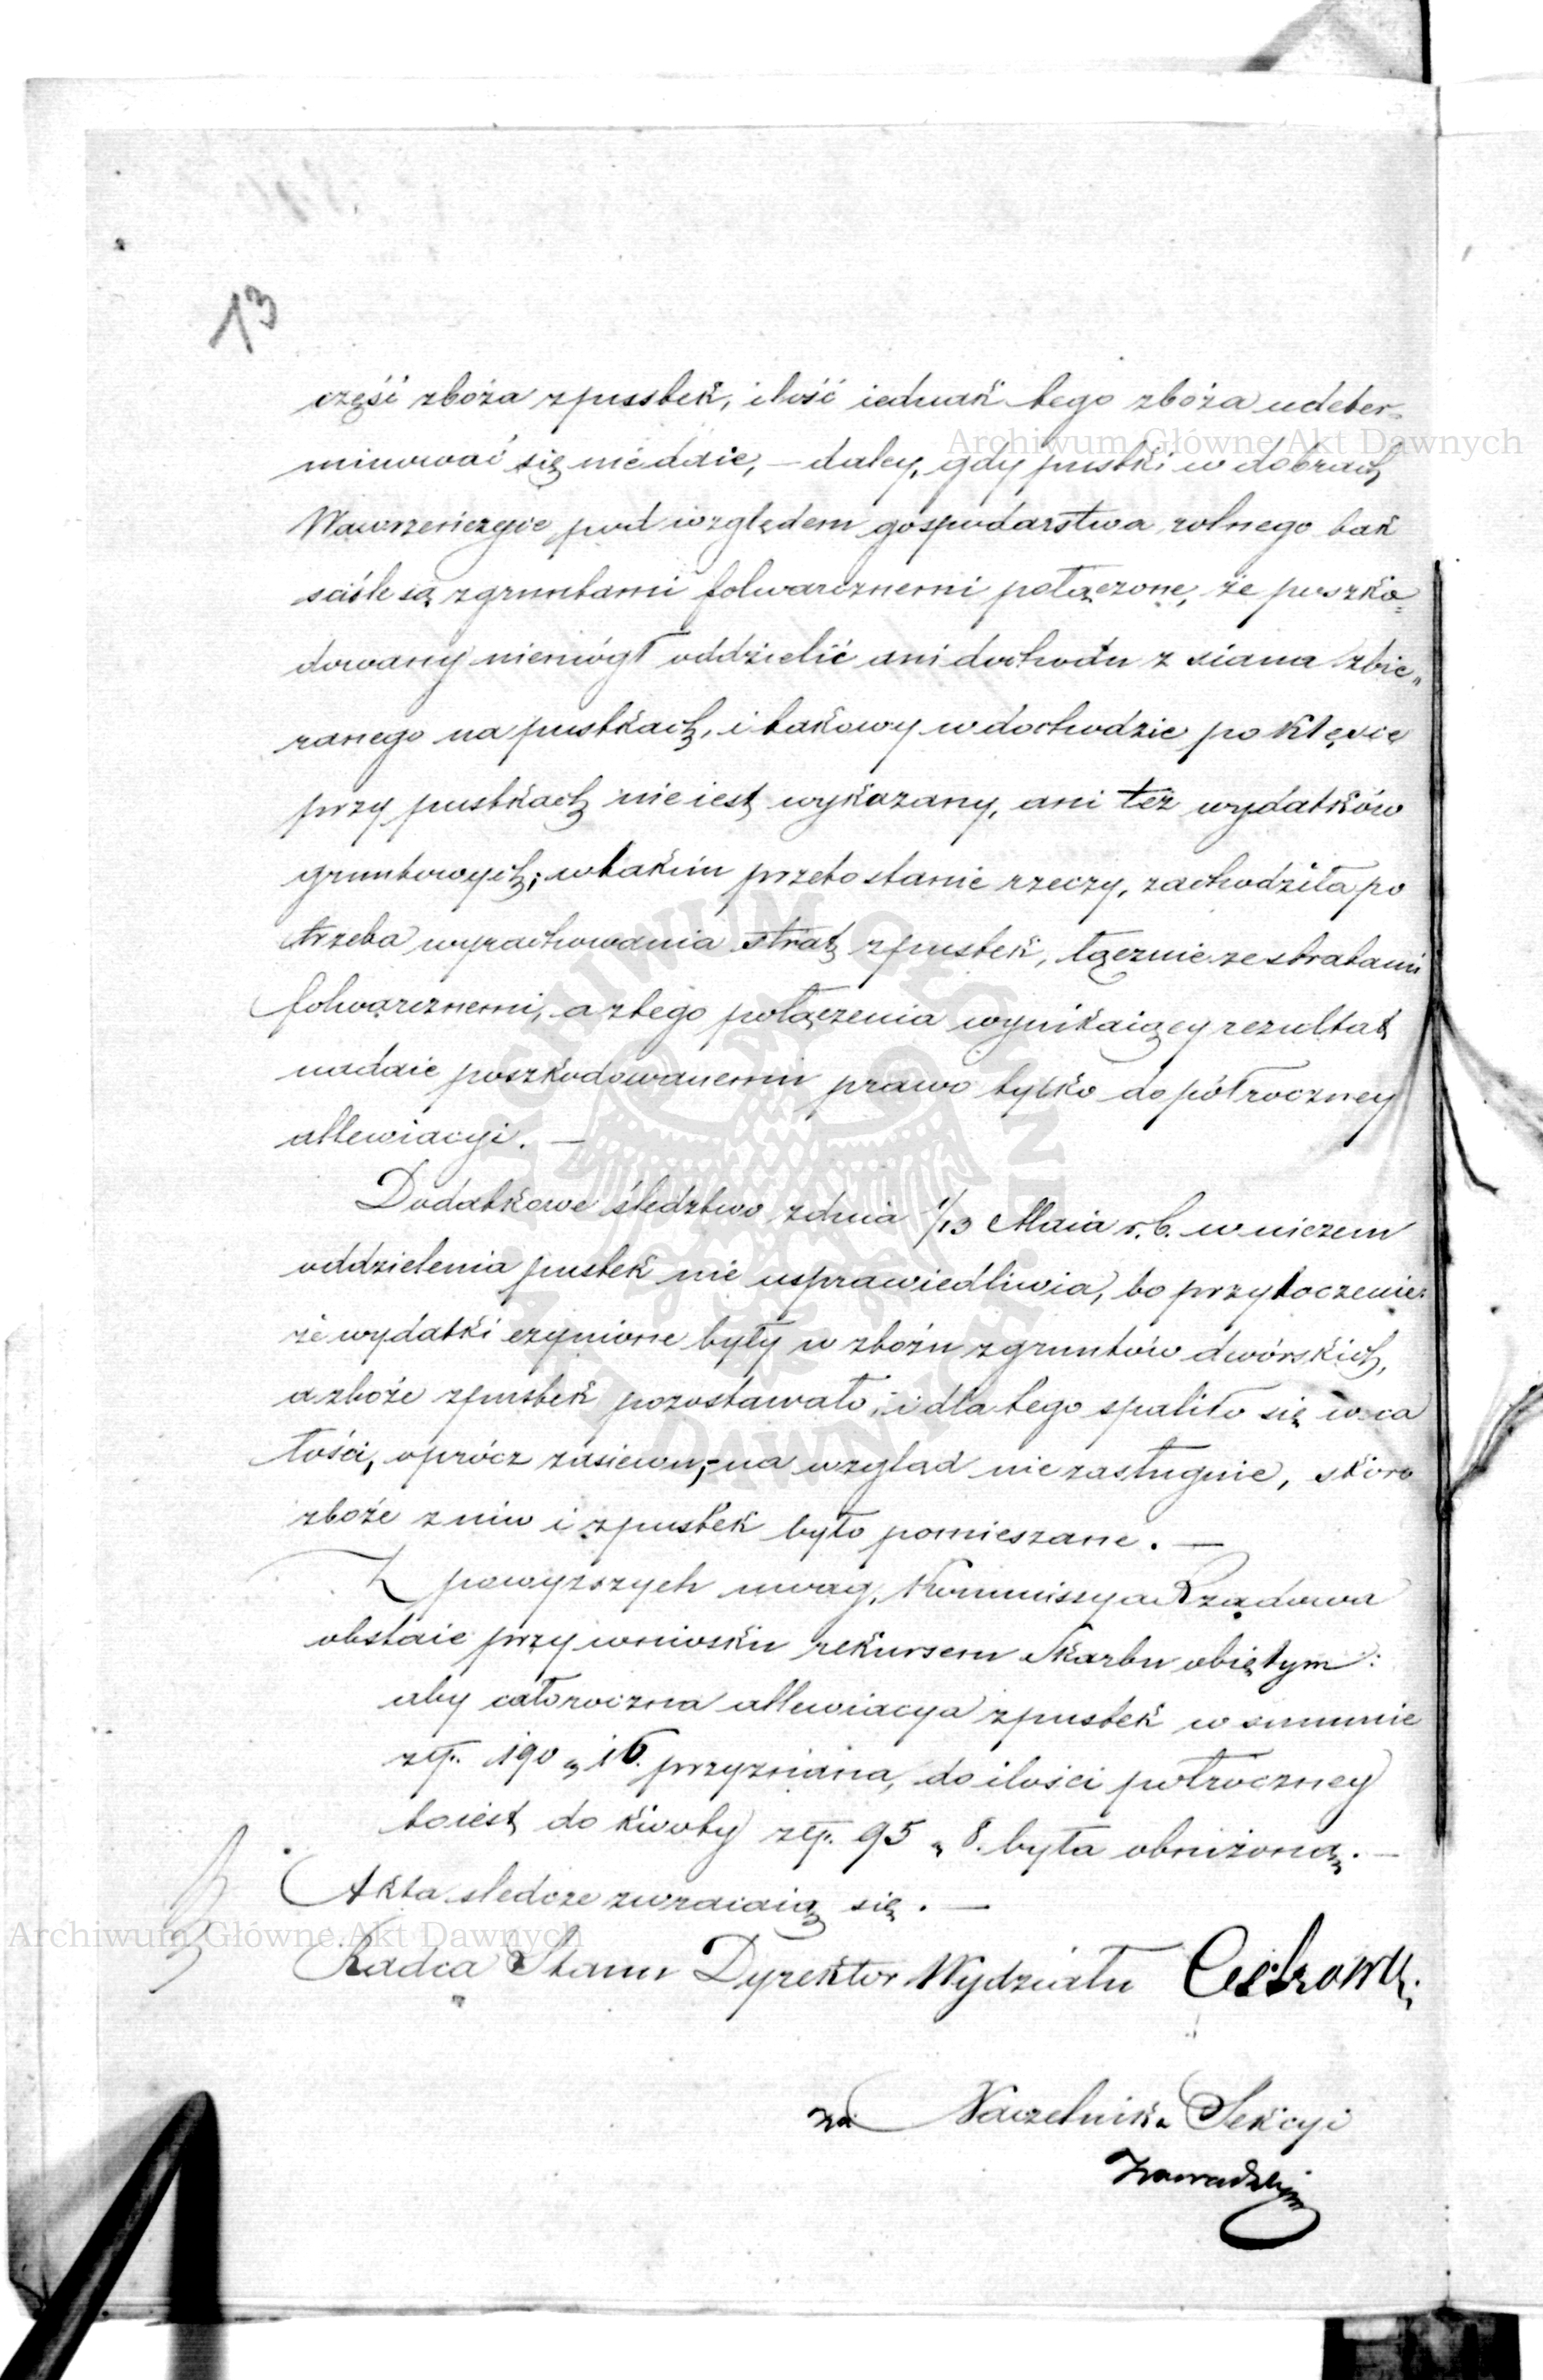 13
część zboża z pustek, ilość iednak tego zboża udeter=
minować się niedaie, — daley, gdy pustki w dobrach
Wawrzeńczyce pod względem gospodarstwa rolnego tak
ściśle są z gruntami folwarcznemi połączone, że poszko=
dowany niemógł oddzielić ani dochodu z siana zbie„
ranego na pustkach, i takowy w dochodzie po klęsce
przy pustkach nie iest wykazany, ani też wydatków
gruntowych; w takim przeto stanie rzeczy, zachodziła po
trzeba wyrachowania strat z pustek, łącznie ze stratami
folwarcznemi, a z tego połączenia wynikaiący rezultat
nadaie poszkodowanemu prawo tylko do półroczney
allewiacyi. —
Dodatkowe śledztwo z dnia 1/13 Maia r. b. w niczem
oddzielenia pustek nie usprawiedliwia, bo przytoczenie:
że wydatki czynione były w zbożu z gruntów dwórskich,
a zboże z pustek pozostawało, i dla tego spaliło się w ca
łości, oprócz zasiewu, — na wzgląd nie zasługuie, skoro
zboże z niw i z pustek było pomieszane. —
Z powyższych uwag, Kommissya Rządowa
obstaie przy wniosku rekursem Skarbu obiętym:
aby całoroczna allewiacya z pustek w summie
złp. 190 „ 16. przyznana, do ilości półroczney
to iest do kwoty złp. 95 „ 8. była obniżoną. —
Akta śledcze zwracaią się. —
Radca Stanu Dyrektor Wydziału
za Naczelnika Sekcyi
Archiwum Główne Akt Dawnych
Archiwum Główne Akt Dawnych
ARCHIWUM GŁÓWNE AKT DAWNYCH